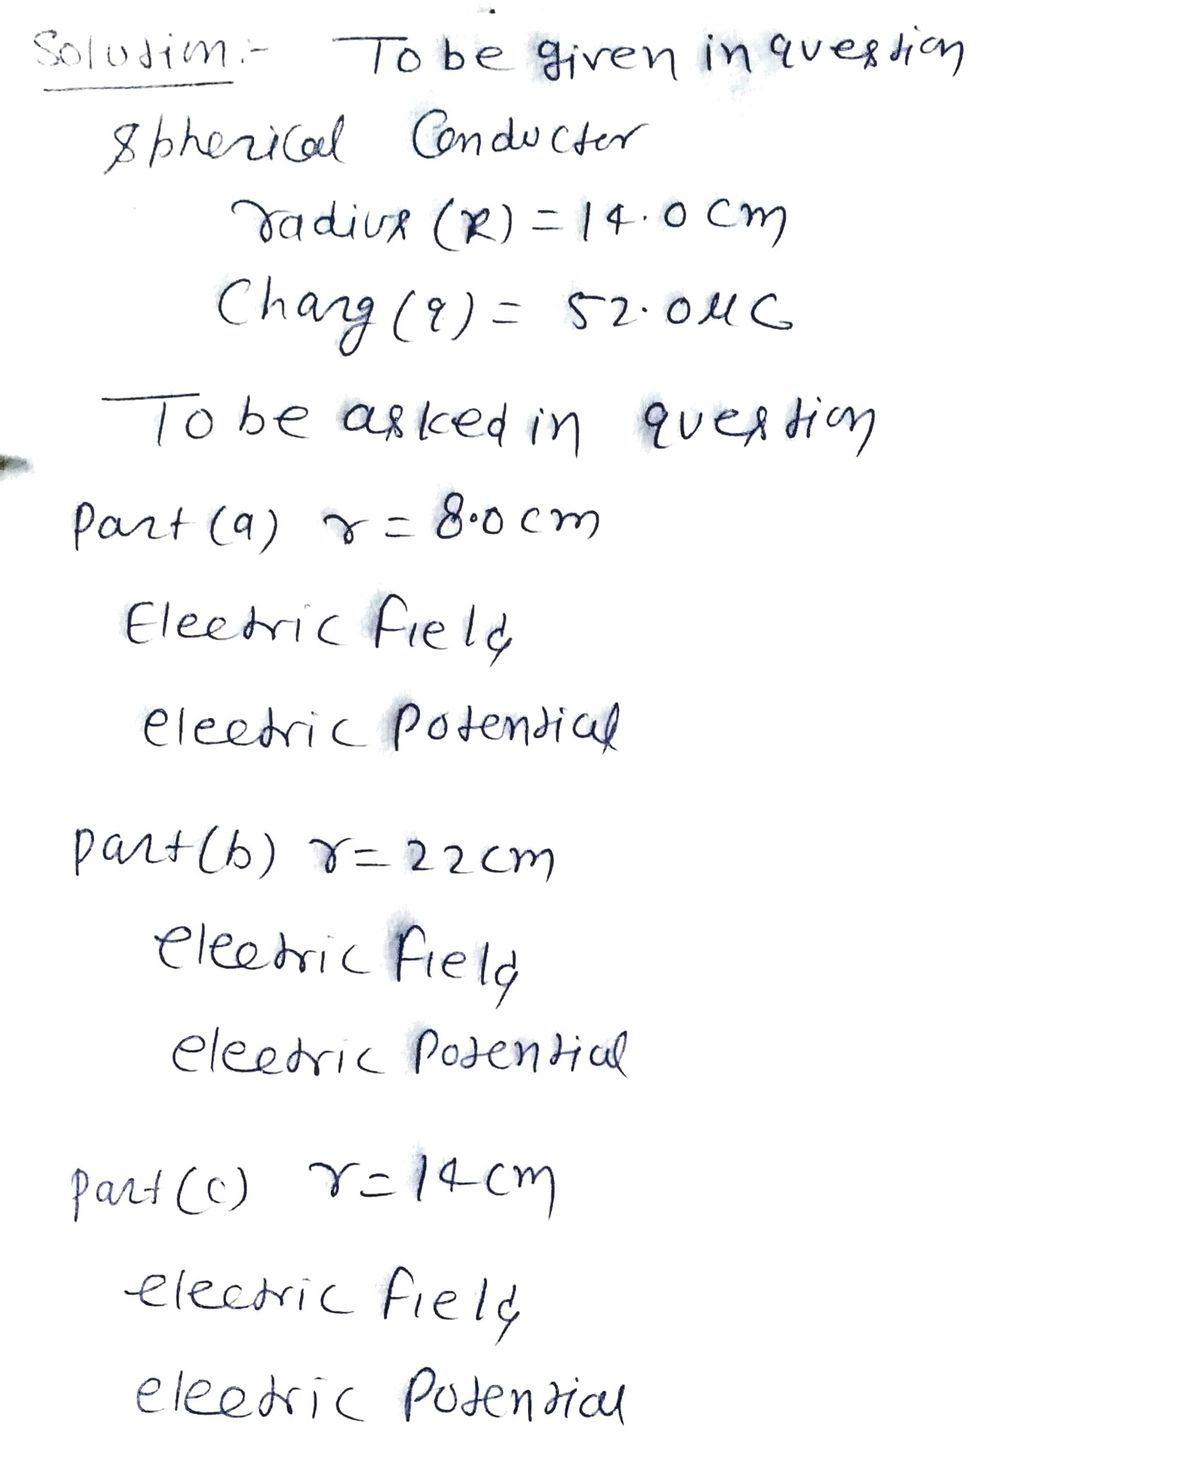 Solution:- To be given in question
Spherical Conductor
radius (R) = 14.0 cm
Charg (q) = 52.0 μC
To be asked in question
Part (a) r = 8.0 cm
Electric field
electric Potential
part (b) r = 22 cm
electric field
electric Potential
part (c) r = 14 cm
electric field
electric Potential